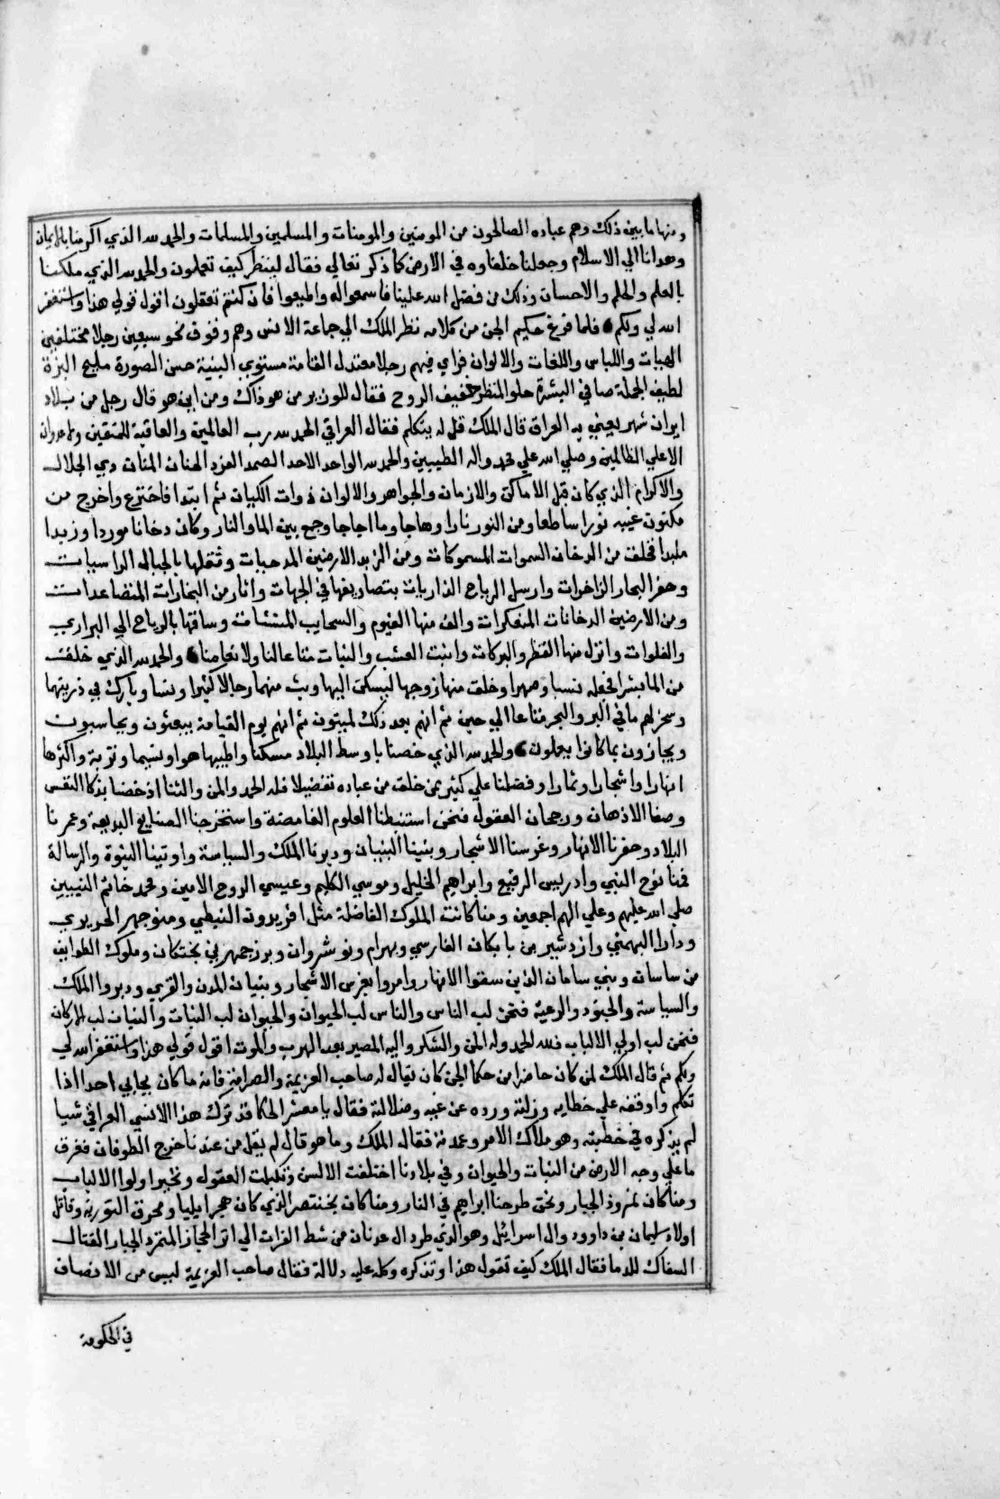 ومنها ما بين ذلك وهم عباده الصالحون من المومنين والمومنات والمسلمين والمسلمات والحمد لله الذي اكرمنا بالايمان
وهدانا الي الاسلام وجعلنا خلفاوه في الارض كما ذكر تعالي فقال لينظر كيف تعملون والحمد لله الذي ملكنا
بالعلم والحلم والاحسان وذلك من فضل الله علينا فاسمعوا له واطيعوا فان كنتم تعقلون اقول قولي هذا واستغفر
الله لي ولكم فلما فرغ حكيم الجن من كلامه نظر الملك الي جماعة الانس وهم وقوف نحو سبعين رجلا مختلفين
الهيات واللباس واللغات والالوان فراي فيهم رجلا معتدل القامة مستوي البنية حسن الصورة مليح البزة
لطيف الجملة صافي البشرة حلو المنظر خفيف الروح فقال للوزير من هو ذاك ومن اين هو قال رجل من بلاد
ايران شهر يعني به العراق قال الملك قل له يتكلم فقال العراقي الحمد لله رب العالمين والعاقبة للمتقين ولا عدوان
الا علي الظالمين وصلي الله علي محمد واله الطيبين والحمد لله الواحد الاحد الصمد الفرد الحنان المنان ذي الجلال
والاكرام الذي كان قبل الاماكن والازمان والجواهر والالوان ذوات الكيان ثم ابتدا فاخترع واخرج من
مكنون غيبه نورا ساطعا ومن النور نارا وهاجا وما اجاجا وجمع بين الما والنار وكان دخانا موردا وزبدا
ملبدا فخلق من الدخان السموات المسموكات ومن الزبد الارضين المدحيات وثقلها بالجبال الراسيات
وحفر البحار الزاخرات وارسل الرياح الذاريات بتصاريفها في الجهات واثار من البخارات المتصاعدات
ومن الارضين الدخانات المتعكرات والف منها الغيوم والسحايب المنشئات وساقها بالرياح الي البراري
والفلوات وانزل منها القطر والبركات وانبت العشب والنبات متاعا لنا ولانعامنا والحمد لله الذي خلق
من الما بشرا فجعله نسبا وصهرا وخلق منها زوجها ليسكن اليها وبث منهما رجالا كثيرا ونسا وبارك في ذريتهما
وسخر لهم ما في البر والبحر متاعا الي حين ثم انهم بعد ذلك لميتون ثم انهم يوم القيامة يبعثون ويحاسبون
ويجازون بما كانوا يعملون والحمد لله الذي خصنا باوسط البلاد مسكنا واطيبها هوا ونسيما وتربة واكثرها
انهارا واشجارا وثمارا وفضلنا علي كثير ممن خلق من عباده تفضيلا فله الحمد والمن والثنا اذ خصنا بذكا النفس
وصفا الاذهان ورجحان العقول فنحن استنبطنا العلوم الغامضة واستخرجنا الصنايع البديعة وعمرنا
البلاد وحفرنا الانهار وغرسنا الاشجار وبنينا البنيان ودبرنا الملك والسياسة واوتينا النبوة والرسالة
فمنا نوح النبي وادريس الرفيع وابراهيم الخليل وموسي الكليم وعيسي الروح الامين ومحمد خاتم النبيين
صلي الله عليهم وعلي الهم اجمعين ومنا كانت الملوك الفاضلة مثل افريدون النبطي ومنوجهر الحريري
ودارا البهمني وازدشير بن بابكان الفارسي وبهرام ونوشروان وبزرجمهر بن بختكان وملوك الطوايف
من ساسان وبني سامان الذين سقوا الانهار وامروا بغرس الاشجار وبنيان المدن والقري ودبروا الملك
والسياسة والجنود والرعية فنحن لب الناس والناس لب الحيوان والحيوان لب النبات والنبات لب الاركان
فنحن لب اولي الالباب فلله الحمد وله المن والشكر واليه المصير بعد الهرب والموت اقول قولي هذا واستغفر الله لي
ولكم ثم قال الملك لمن كان حاضرا من حكما الجن كان يقال له صاحب العزيمة والصرامة فانه ما كان يحابي احدا اذا
تكلم واوقفه علي خطايه وزلته ورده عن غيه وضلالته فقال يا معشر الحكما قد ترك هذا الانسي العراقي شيا
لم يذكره في خطبته وهو ملاك الامر وعمدته فقال الملك وما هو قال لم يقل من عندنا خرج الطوفان فغرق
ما علي وجه الارض من النبات والحيوان وفي بلادنا اختلفت الالسن وتبلبلت العقول وتحيروا اولوا الالباب
ومنا كان نمرود الجبار ونحن طرحنا ابراهيم في النار ومنا كان بختنصر الذي كان هجر ايليا ومحرق التورية وقاتل
اولاد سليمان بن داوود وال اسرائيل وهو الذي طرد ال عدنان من شط الفرات الي اتر الحجاز المتمرد الجبار القتال
السفاك للدما فقال الملك كيف تقول هذا وتذكره وكله عليه دلالة فقال صاحب العزيمة ليس من الانصاف
في الحكومة